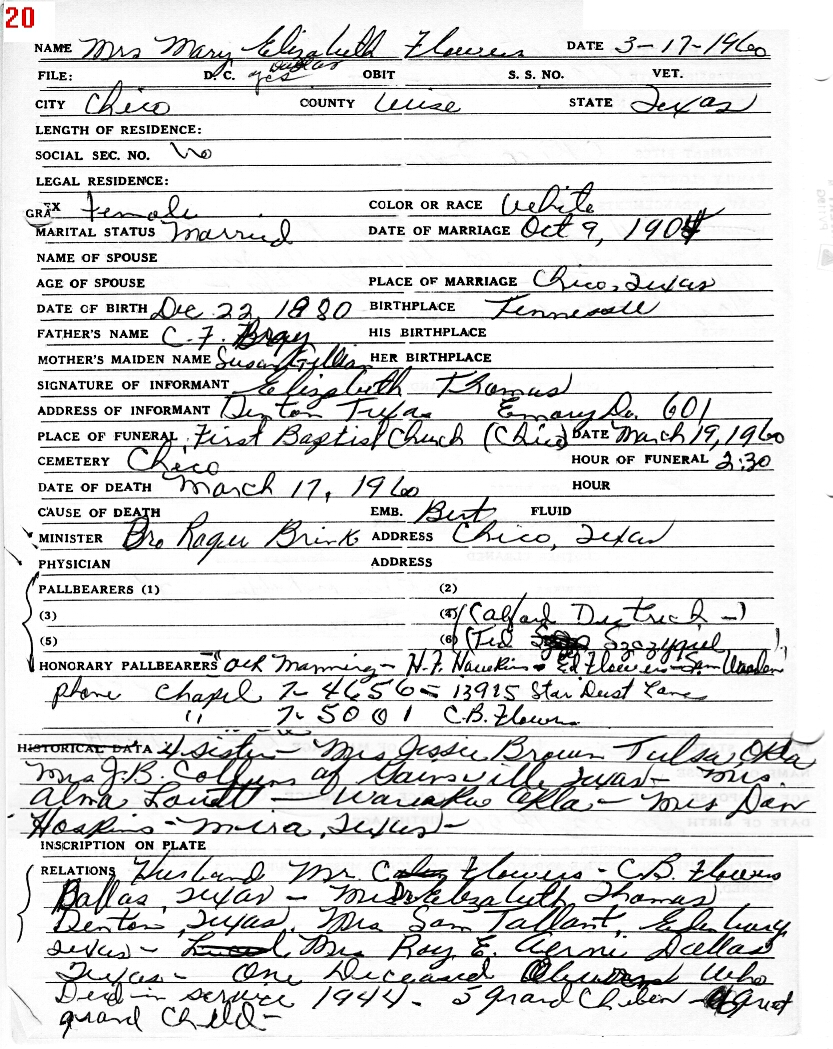 20
NAME Mrs Mary Elizabeth Flowers DATE 3-17-1960
FILE: D. C. yes Dallas OBIT S. S. NO. VET.
CITY Chico COUNTY Wise STATE Texas
LENGTH OF RESIDENCE:
SOCIAL SEC. NO. No
LEGAL RESIDENCE:
Female COLOR OR RACE White
MARITAL STATUS Married DATE OF MARRIAGE Oct 9, 1904
NAME OF SPOUSE
AGE OF SPOUSE PLACE OF MARRIAGE Chico, Texas
DATE OF BIRTH Dec 22 1880 BIRTHPLACE Tennessee
FATHER'S NAME C. F. Bray HIS BIRTHPLACE
MOTHER'S MAIDEN NAME Susan HER BIRTHPLACE
SIGNATURE OF INFORMANT Elizabeth Thomas
ADDRESS OF INFORMANT Denton Texas Emory Dr. 601
PLACE OF FUNERAL First Baptist Church (Chico) DATE March 19, 1960
CEMETERY Chico HOUR OF FUNERAL 2:30
DATE OF DEATH March 17, 1960 HOUR
CAUSE OF DEATH EMB. Bert FLUID
MINISTER Bro Roger Brink ADDRESS Chico, Texas
PHYSICIAN ADDRESS
PALLBEARERS (1) (2)
(3) (4) Dietrich -)
(5) (6) (Ted )
HONORARY PALLBEARERS Manning - H. F. Hawkins - Ed Flowers - Sam
phone Chapel 7-4656 - 13915 Star Dust Lane
" 7-5001 C.B. Flowers
HISTORICAL DATA 4 sister - Mrs Jessie Brown Tulsa, Okla
Mrs J. B. Collums of Gainsville Texas - Mrs.
Alma - Okla - Mrs Dan
Hoskins - Texas -
INSCRIPTION ON PLATE
RELATIONS Husband Mr. Flowers - C.B. Flowers
Dallas, Texas - Elizabeth Thomas
Denton, Texas, Mrs Sam Tallant, Edinburg
Texas - Mrs Roy E. Aerni Dallas
Texas - One Deceased who
Died in service 1944 - 5 grand Great
grand Child -